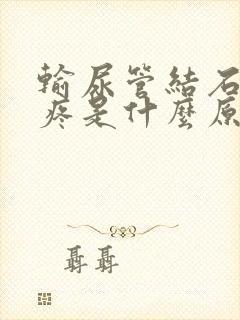 輸尿管結石
疼是什麼原
聶聶